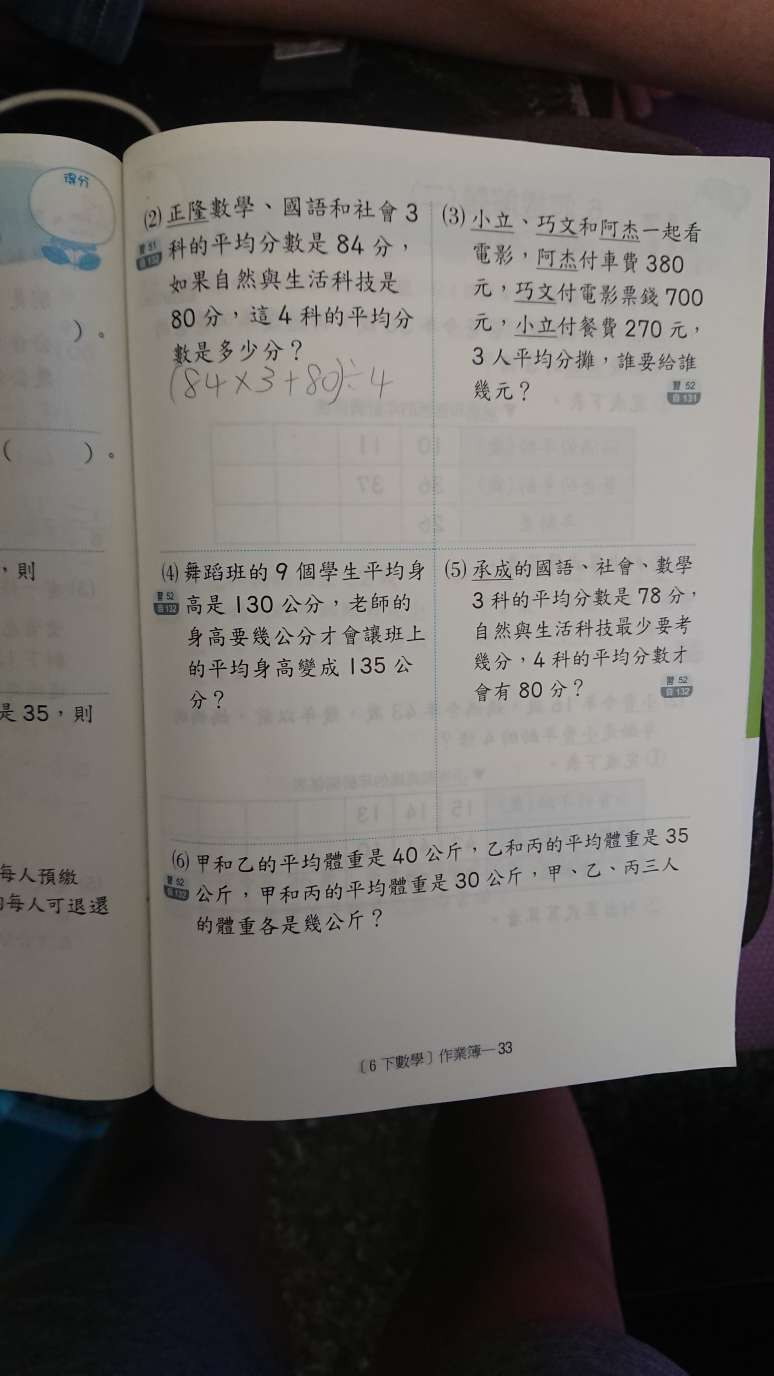 得分
)。
( )。
，則
是 35，則
每人預繳
每人可退還
(2) 正隆數學、國語和社會 3
科的平均分數是 84 分，
如果自然與生活科技是
80 分，這 4 科的平均分
數是多少分？
(84×3+80)÷4
(3) 小立、巧文和阿杰一起看
電影，阿杰付車費 380
元，巧文付電影票錢 700
元，小立付餐費 270 元，
3 人平均分攤，誰要給誰
幾元？
習 52
自 131
(4) 舞蹈班的 9 個學生平均身
習 52
自 132
高是 130 公分，老師的
身高要幾公分才會讓班上
的平均身高變成 135 公
分？
(5) 承成的國語、社會、數學
3 科的平均分數是 78 分，
自然與生活科技最少要考
幾分，4 科的平均分數才
會有 80 分？
習 52
自 132
(6) 甲和乙的平均體重是 40 公斤，乙和丙的平均體重是 35
習 52
公斤，甲和丙的平均體重是 30 公斤，甲、乙、丙三人
的體重各是幾公斤？
〔6 下數學〕作業簿—33